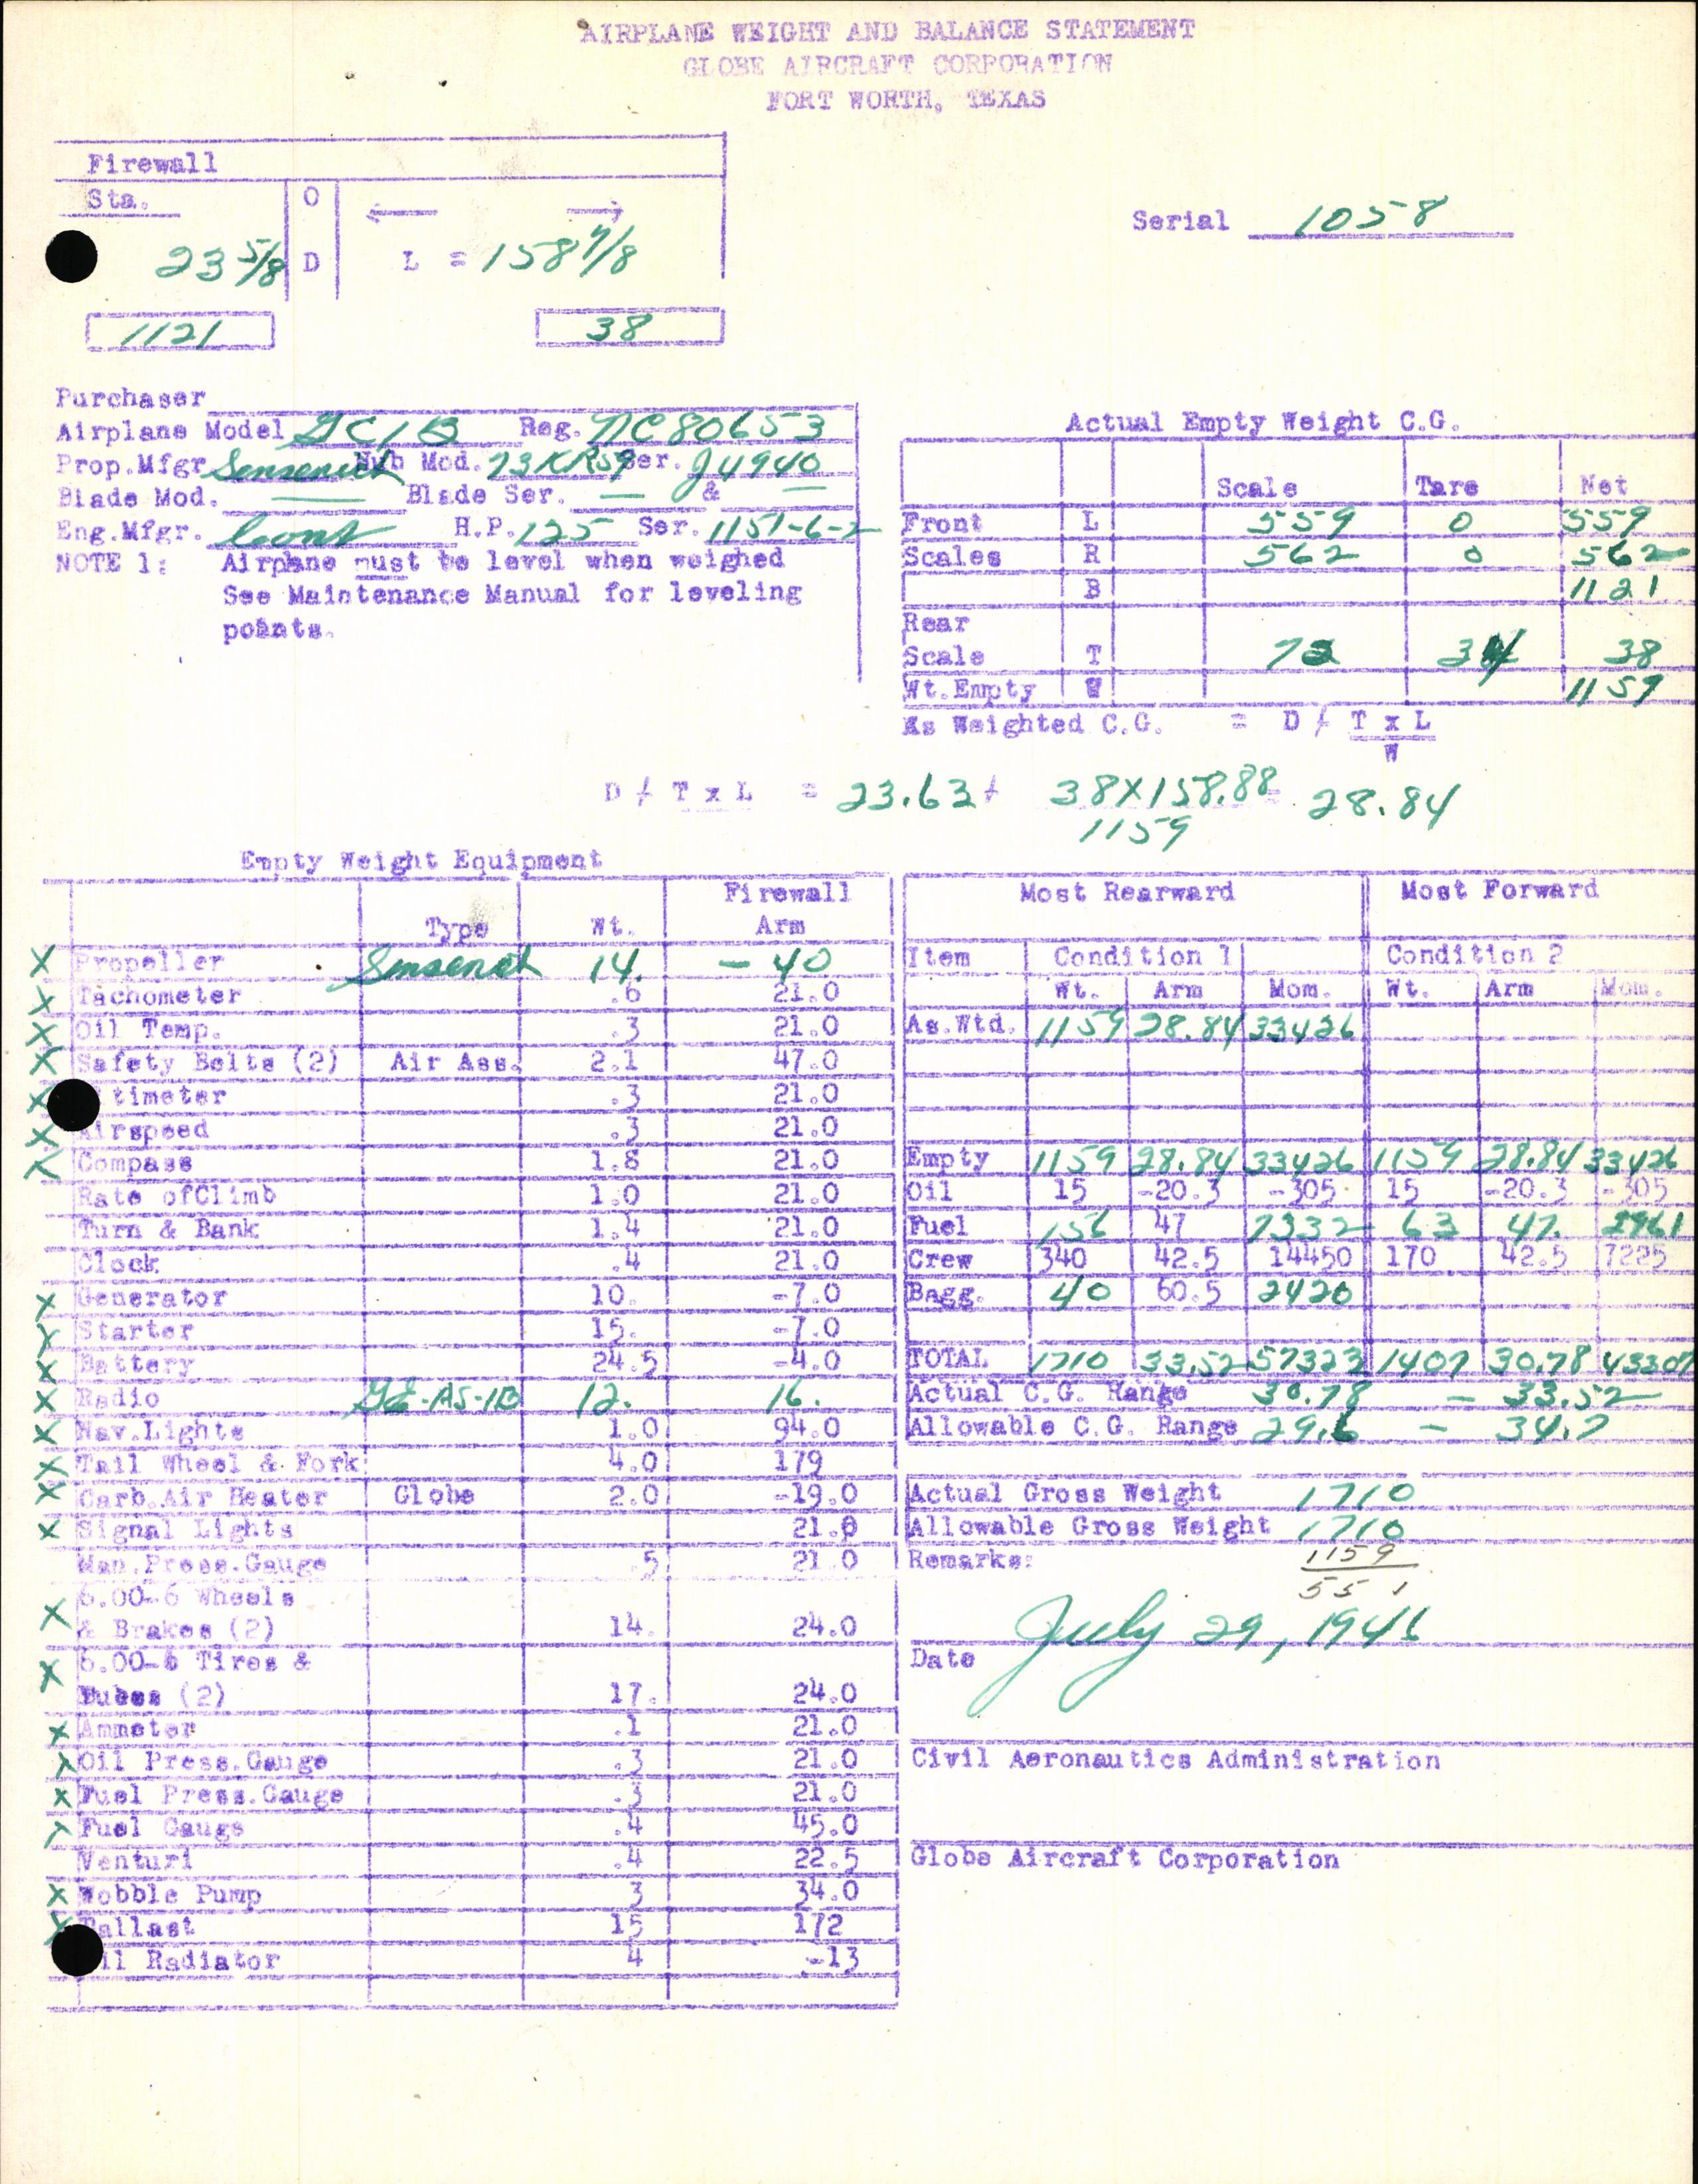 AIRPLANE WEIGHT AND BALANCE STATEMENT
GLOBE AIRCRAFT CORPORATION
FORT WORTH, TEXAS
Firewall
Sta. O ← →
23 5/8 D L = 158 7/8
Serial 1058
1121 38
Purchaser
Airplane Model GC1B Reg. NC80653
Prop.Mfgr Sensenich Hub Mod. 73KR59 Ser. J4940
Blade Mod. — Blade Ser. — & —
Eng.Mfgr. Cont H.P. 125 Ser. 1151-6-2
NOTE 1: Airplane must be level when weighed
See Maintenance Manual for leveling
points.
Actual Empty Weight C.G.
Scale Tare Net
Front L 559 0 559
Scales R 562 0 562
B 1121
Rear
Scale T 72 34 38
Wt.Empty W 1159
As Weighted C.G. = D / T x L
W
D / T x L = 23.63 + 38X158.88 = 28.84
1159
Empty Weight Equipment
Type Wt. Firewall Arm
X Propeller Sensenich 14. -40
X Tachometer .6 21.0
X Oil Temp. .3 21.0
X Safety Belts (2) Air Ass. 2.1 47.0
X timeter .3 21.0
X Airspeed .3 21.0
X Compass 1.8 21.0
Rate ofClimb 1.0 21.0
Turn & Bank 1.4 21.0
Clock .4 21.0
X Generator 10. -7.0
X Starter 15. -7.0
X Battery 24.5 -4.0
X Radio GE-AS-1B 12. 16.
X Nav.Lights 1.0 94.0
X Tail Wheel & Fork 4.0 179
X Carb.Air Heater Globe 2.0 -19.0
X Signal Lights 21.0
Man.Press.Gauge .5 21.0
X 6.00-6 Wheels
& Brakes (2) 14. 24.0
X 6.00-6 Tires &
Tubes (2) 17. 24.0
X Ammeter .1 21.0
X Oil Press.Gauge .3 21.0
X Fuel Press.Gauge .3 21.0
X Fuel Gauge .4 45.0
Venturi .4 22.5
X Wobble Pump 3 34.0
X Ballast 15 172
il Radiator 4 -13
Most Rearward Most Forward
Item Condition 1 Condition 2
Wt. Arm Mom. Wt. Arm Mom.
As.Wtd. 1159 28.84 33426
Empty 1159 28.84 33426 1159 28.84 33426
Oil 15 -20.3 -305 15 -20.3 -305
Fuel 156 47 7332 63 47. 2961
Crew 340 42.5 14450 170 42.5 7225
Bagg. 40 60.5 2420
TOTAL 1710 33.52 57323 1407 30.78 43307
Actual C.G. Range 30.78 - 33.52
Allowable C.G. Range 29.6 - 34.7
Actual Gross Weight 1710
Allowable Gross Weight 1710
Remarks: 1159
551
July 29, 1946
Date
Civil Aeronautics Administration
Globe Aircraft Corporation